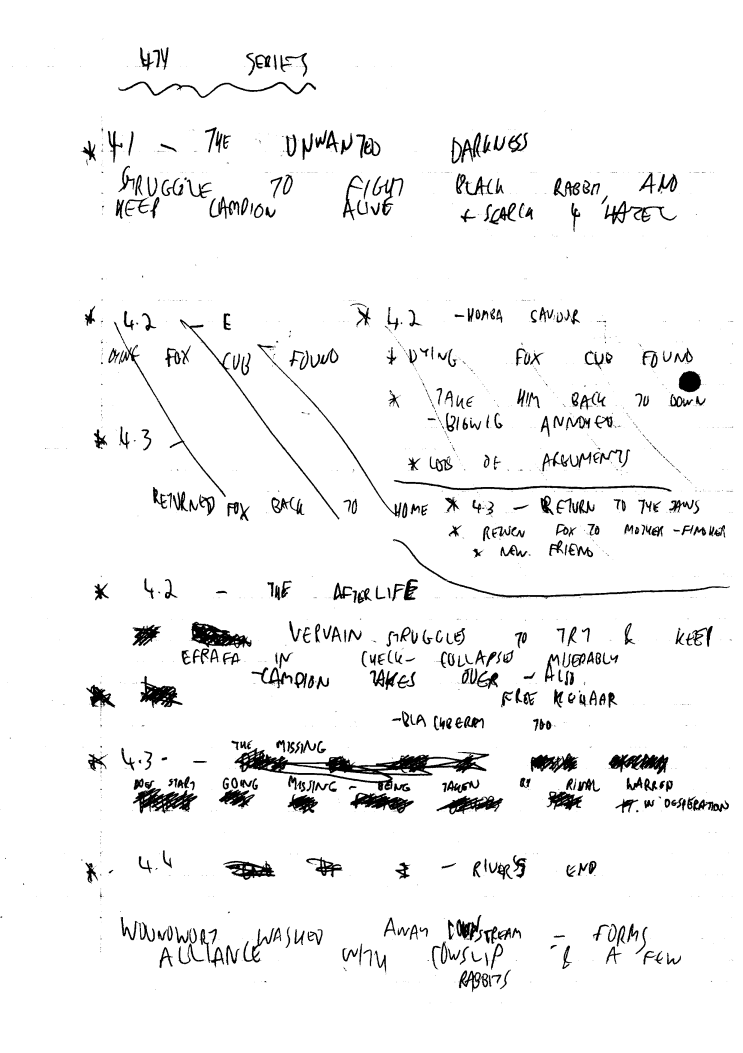 4TH SERIES
* 4.1 - THE UNWANTED DARKNESS
STRUGGLE TO FIGHT BLACK RABBIT, AND
KEEP CAMPION ALIVE + SEARCH 4 HAZEL
* 4.2 - E
DYING FOX CUB FOUND
* 4.3 -
RETURNED FOX BACK TO HOME
* 4.2 - HOMBA SAVIOUR
* DYING FOX CUB FOUND
* TAKE HIM BACK TO DOWN
- BIGWIG ANNOYED
* LOTS OF ARGUMENTS
* 4.3 - RETURN TO THE JAWS
* RETURN FOX TO MOTHER - FIND HER
* NEW FRIEND
* 4.2 - THE AFTERLIFE
VERVAIN STRUGGLES TO TRY & KEEP
EFRAFA IN CHECK - COLLAPSES MISERABLY
- CAMPION TAKES OVER - ALSO
FREE KEHAAR
- BLACKBERRY TOO
* 4.3 - - THE MISSING
DOES START GOING MISSING - BEING TAKEN BY RIVAL WARREN
W DESPERATION
* - 4.4 - RIVER'S END
WOUNDWORT WASHED AWAY DOWNSTREAM - FORMS
ALLIANCE WITH COWSLIP & A FEW
RABBITS